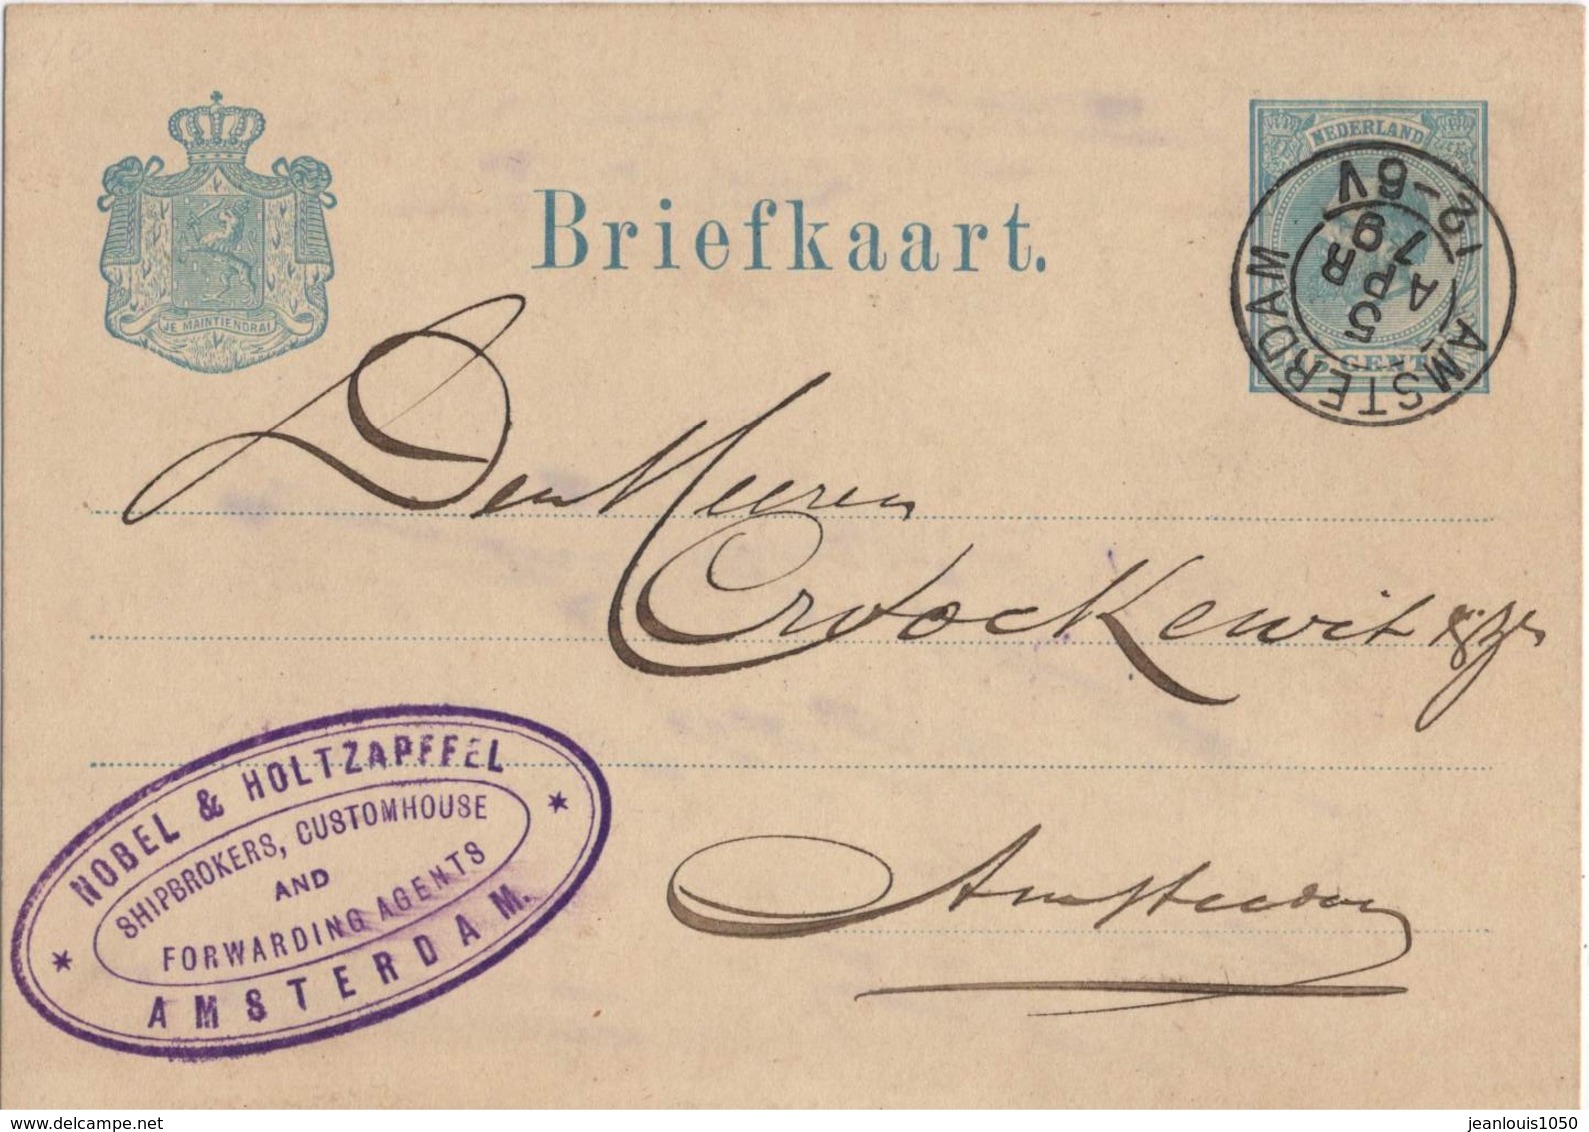 NEDERLAND
Briefkaart.
JE MAINTIENDRAI
5 CENT
AMSTERDAM
5 APR
91
12-6V
Den Heeren
Crdock
Amsterdam
NOBEL & HOLTZAPFFEL
SHIPBROKERS, CUSTOMHOUSE
AND
FORWARDING AGENTS
AMSTERDAM.
delcampe.net
jeanlouis1050